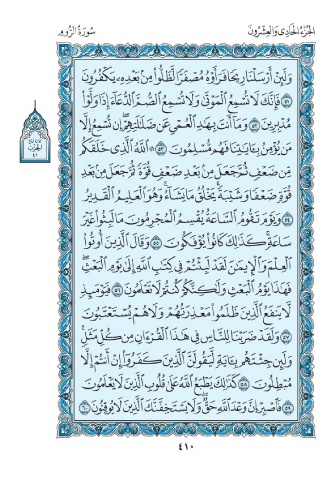 الجزء الحادي والعشرون
سورة الروم
وَلَئِنْ أَرْسَلْنَا رِيحًا فَرَأَوْهُ مُصْفَرًّا لَّظَلُّوا۟ مِنۢ بَعْدِهِۦ يَكْفُرُونَ
٥١ فَإِنَّكَ لَا تُسْمِعُ ٱلْمَوْتَىٰ وَلَا تُسْمِعُ ٱلصُّمَّ ٱلدُّعَآءَ إِذَا وَلَّوْا۟
مُدْبِرِينَ ٥٢ وَمَآ أَنتَ بِهَٰدِ ٱلْعُمْىِ عَن ضَلَٰلَتِهِمْ إِن تُسْمِعُ إِلَّا
مَن يُؤْمِنُ بِـَٔايَٰتِنَا فَهُم مُّسْلِمُونَ ٥٣ ۞ ٱللَّهُ ٱلَّذِى خَلَقَكُم
مِّن ضَعْفٍ ثُمَّ جَعَلَ مِنۢ بَعْدِ ضَعْفٍ قُوَّةً ثُمَّ جَعَلَ مِنۢ بَعْدِ
قُوَّةٍ ضَعْفًا وَشَيْبَةً يَخْلُقُ مَا يَشَآءُ وَهُوَ ٱلْعَلِيمُ ٱلْقَدِيرُ
٥٤ وَيَوْمَ تَقُومُ ٱلسَّاعَةُ يُقْسِمُ ٱلْمُجْرِمُونَ مَا لَبِثُوا۟ غَيْرَ
سَاعَةٍ كَذَٰلِكَ كَانُوا۟ يُؤْفَكُونَ ٥٥ وَقَالَ ٱلَّذِينَ أُوتُوا۟
ٱلْعِلْمَ وَٱلْإِيمَٰنَ لَقَدْ لَبِثْتُمْ فِى كِتَٰبِ ٱللَّهِ إِلَىٰ يَوْمِ ٱلْبَعْثِ
فَهَٰذَا يَوْمُ ٱلْبَعْثِ وَلَٰكِنَّكُمْ كُنتُمْ لَا تَعْلَمُونَ ٥٦ فَيَوْمَئِذٍ
لَّا يَنفَعُ ٱلَّذِينَ ظَلَمُوا۟ مَعْذِرَتُهُمْ وَلَا هُمْ يُسْتَعْتَبُونَ
٥٧ وَلَقَدْ ضَرَبْنَا لِلنَّاسِ فِى هَٰذَا ٱلْقُرْءَانِ مِن كُلِّ مَثَلٍ
وَلَئِن جِئْتَهُم بِـَٔايَةٍ لَّيَقُولَنَّ ٱلَّذِينَ كَفَرُوٓا۟ إِنْ أَنتُمْ إِلَّا
مُبْطِلُونَ ٥٨ كَذَٰلِكَ يَطْبَعُ ٱللَّهُ عَلَىٰ قُلُوبِ ٱلَّذِينَ لَا يَعْلَمُونَ
٥٩ فَٱصْبِرْ إِنَّ وَعْدَ ٱللَّهِ حَقٌّ وَلَا يَسْتَخِفَّنَّكَ ٱلَّذِينَ لَا يُوقِنُونَ ٦٠
٤١٠